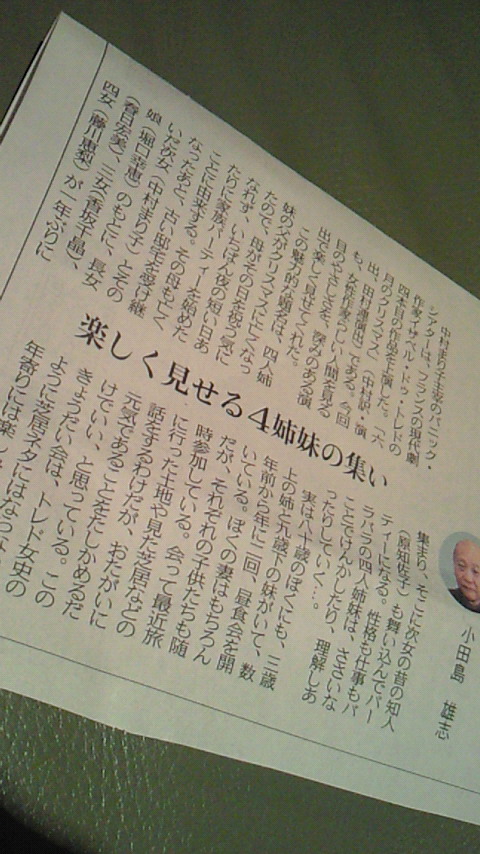 楽しく見せる4姉妹の集い
小田島 雄志
中村まり子主宰のパニック・
シアターは、フランスの現代劇
作家イザベル・ドゥ・トレドの
四本目の作品を上演した。「六
月のクリスマス」（中村訳・演
出、田村連演出）である。今回
も、女性作家らしい人間を見る
目のやさしさを、深みのある演
出で楽しく見せてくれた。
この魅力的な題名は、四人姉
妹の父がクリスマスに亡くなっ
たので、母がその日を祝う気に
なれず、いちばん夜の短い日あ
たりに家族パーティーを始めた
ことに由来する。その母も亡く
なったあと、古い邸宅を受け継
いだ次女（中村まり子）とその
娘（堀口幸恵）のもとに、長女
（春日宏美）、三女（香坂千晶）、
四女（藤川恵梨）が一年ぶりに
集まり、そこに次女の昔の知人
（原知佐子）も舞い込んでパー
ティーになる。性格も仕事もバ
ラバラの四人姉妹は、ささいな
ことでけんかしたり、理解しあ
ったりしていく…。
実は八十歳のぼくにも、三歳
上の姉と九歳下の妹がいて、数
年前から年に二回、昼食会を開
いている。ぼくの妻はもちろん
だが、それぞれの子供たちも随
時参加している。会って最近旅
に行った土地や見た芝居などの
話をするわけだが、おたがいに
元気であることをたしかめるだ
けでいい、と思っている。この
きょうだい会は、トレド女史の
ように芝居ネタにはならない
年寄りには楽し